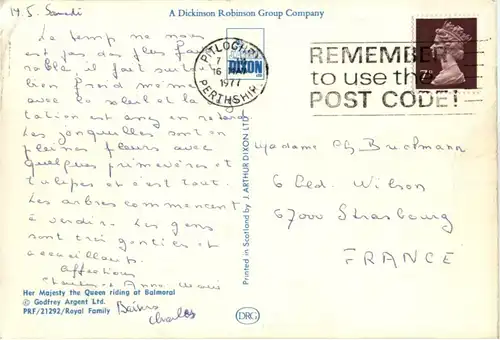 14.5. Samedi
A Dickinson Robinson Group Company
Le temps ne nous
est pas des plus favo
rable il fait surtout
bien froid même
avec le soleil et la
tation est assez en retard
Les jonquilles sont en
pleines fleurs avec
quelques primevères et
tulipes et c'est tout.
Les arbres commencent
à verdir. Les gens
sont très gentils et
accueillants.
Affections
Charles et Anne Marie
Baisers
Charles
Her Majesty the Queen riding at Balmoral
© Godfrey Argent Ltd.
PRF/21292/Royal Family
Printed in Scotland by J. ARTHUR DIXON LTD
DIXON
DRG
PITLOCHRY
16 MAY
1977
PERTHSHIRE
REMEMBER
to use the
POST CODE!
7P
Madame Ch Bruckmann
6 Bld. Wilson
67000 Strasbourg
FRANCE